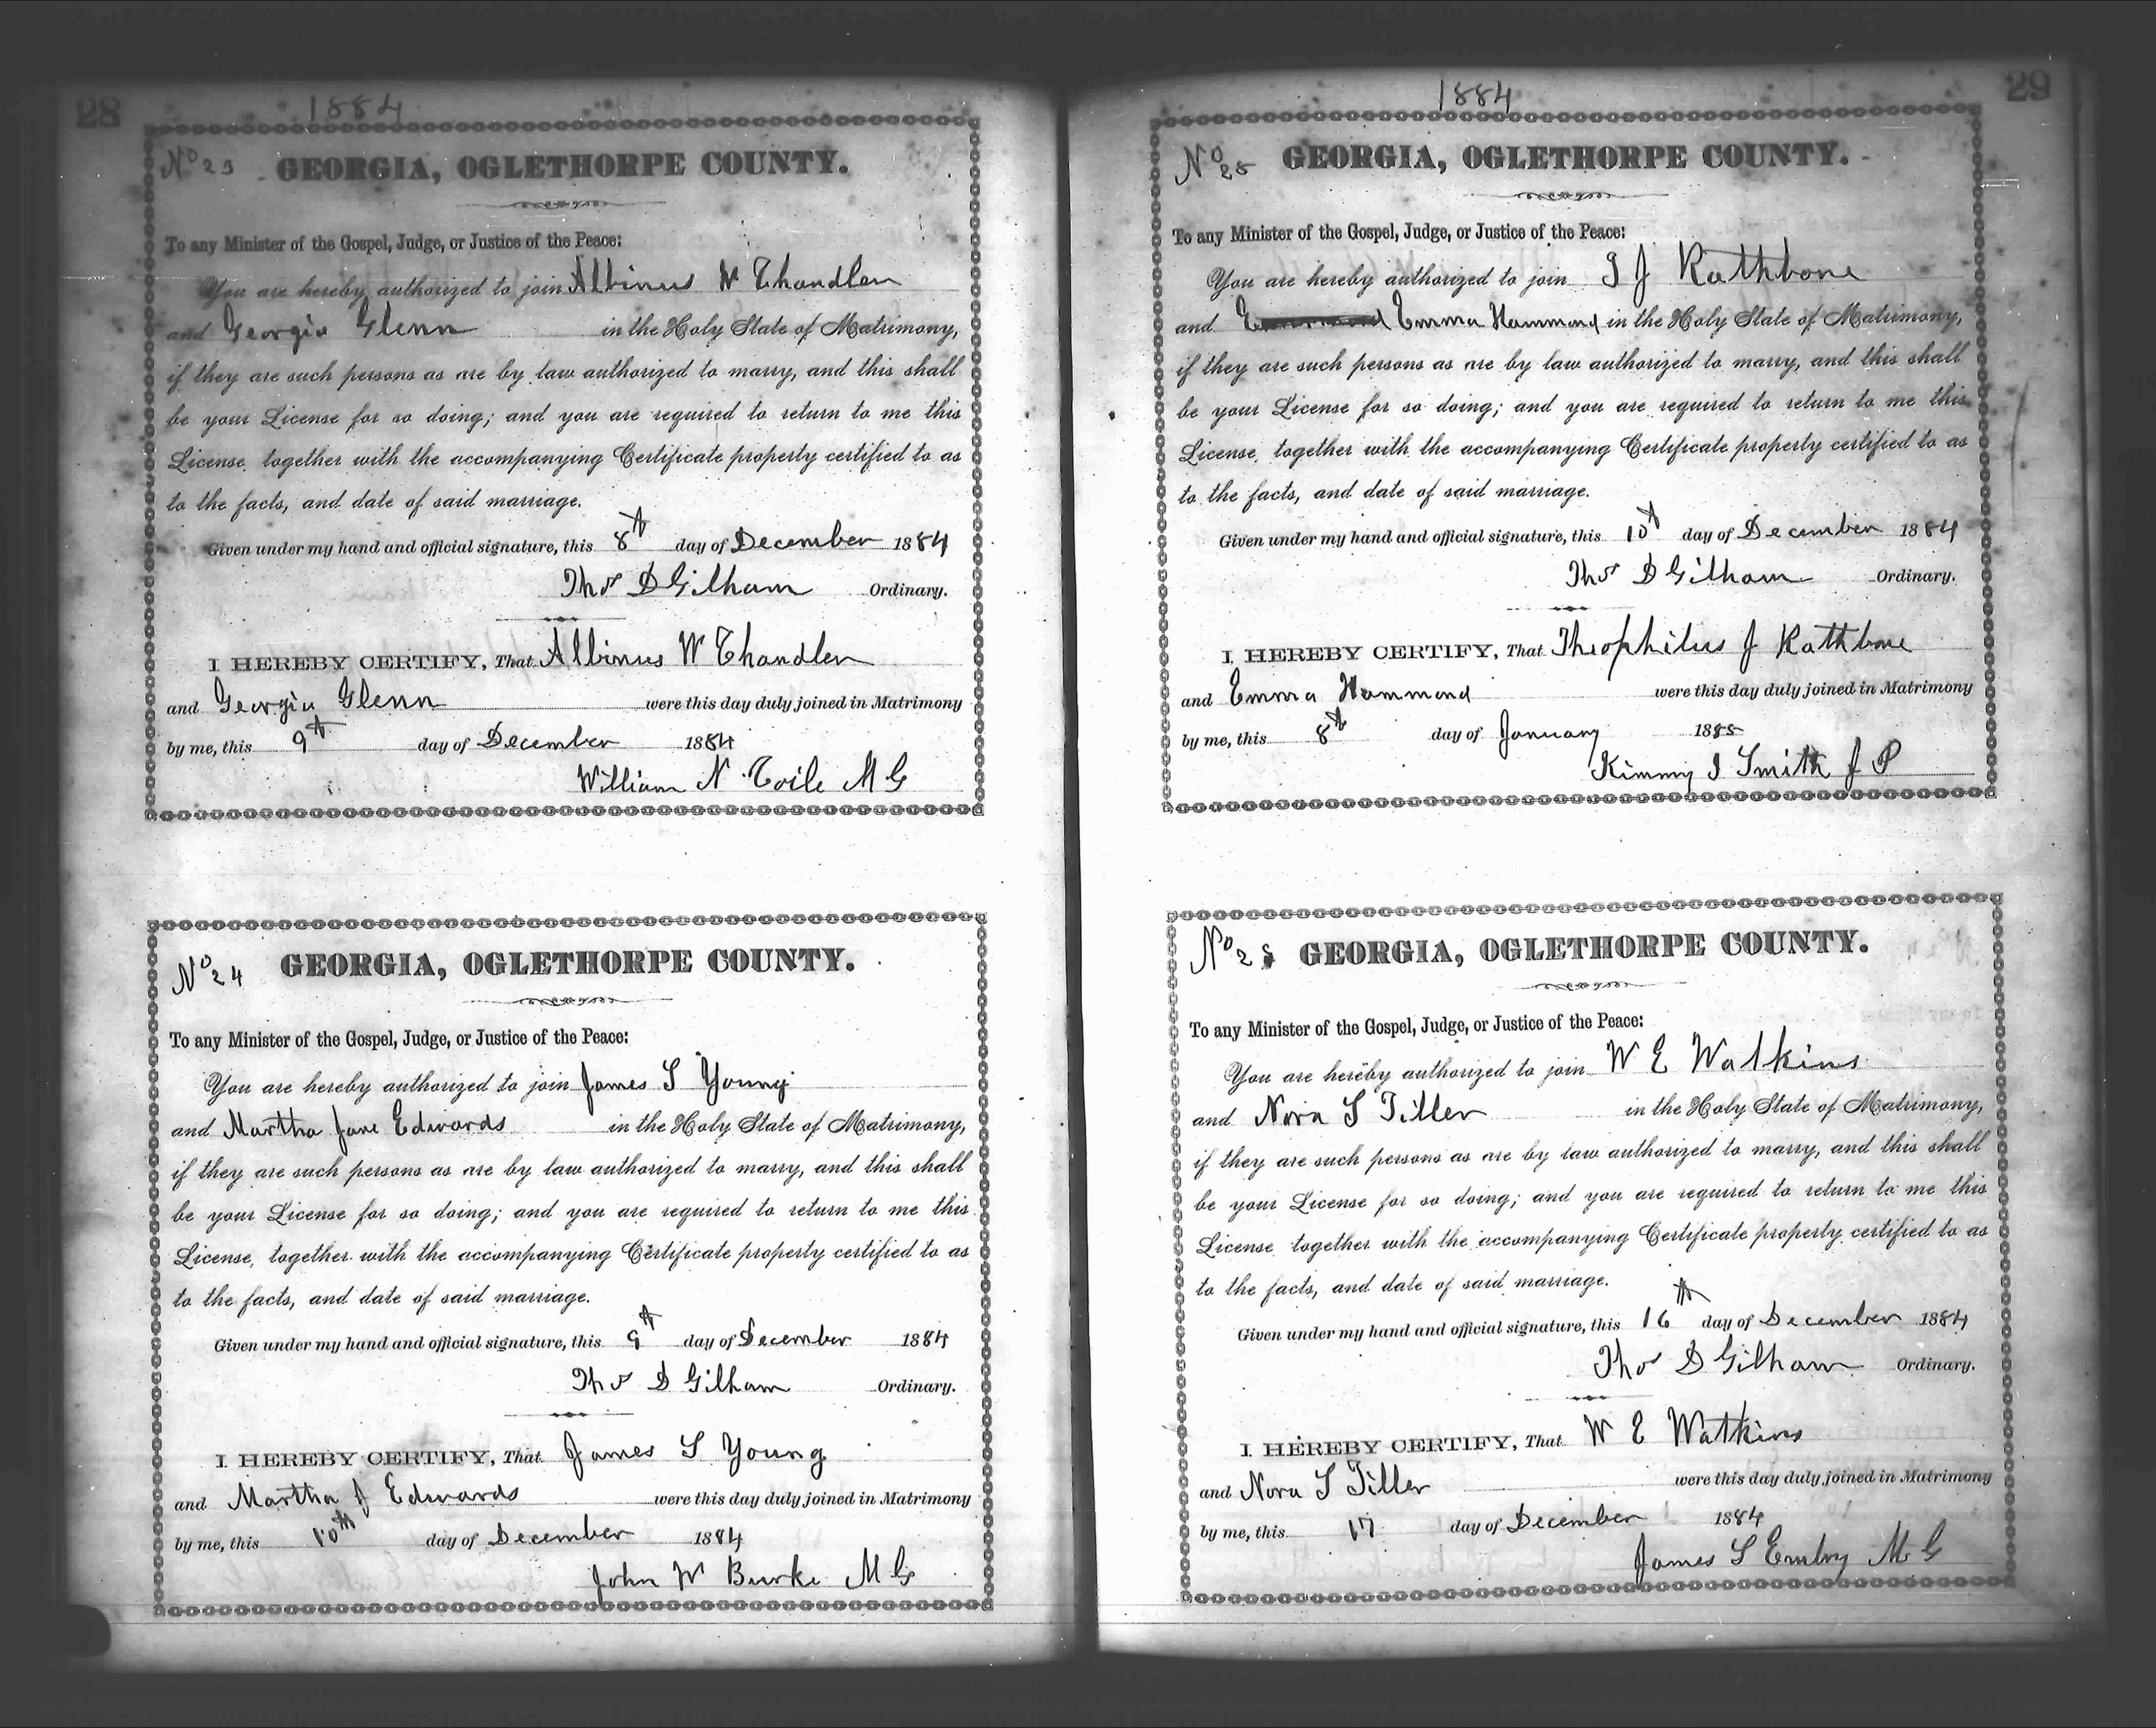 28
1884
No 23 GEORGIA, OGLETHORPE COUNTY.
To any Minister of the Gospel, Judge, or Justice of the Peace:
You are hereby authorized to join Albinus W Chandler
and Georgia Glenn in the Holy State of Matrimony,
if they are such persons as are by law authorized to marry, and this shall
be your License for so doing; and you are required to return to me this
License, together with the accompanying Certificate property certified to as
to the facts, and date of said marriage.
Given under my hand and official signature, this 8th day of December 1884
Thos D Gilham Ordinary.
I HEREBY CERTIFY, That Albinus W Chandler
and Georgia Glenn were this day duly joined in Matrimony
by me, this 9th day of December 1884
William N Coile M G
No 24 GEORGIA, OGLETHORPE COUNTY.
To any Minister of the Gospel, Judge, or Justice of the Peace:
You are hereby authorized to join James S Young
and Martha Jane Edwards in the Holy State of Matrimony,
if they are such persons as are by law authorized to marry, and this shall
be your License for so doing; and you are required to return to me this
License, together with the accompanying Certificate property certified to as
to the facts, and date of said marriage.
Given under my hand and official signature, this 9th day of December 1884
Thos D Gilham Ordinary.
I HEREBY CERTIFY, That James S Young
and Martha J Edwards were this day duly joined in Matrimony
by me, this 10th day of December 1884
John W Burke M G
29
1884
No 25 GEORGIA, OGLETHORPE COUNTY.
To any Minister of the Gospel, Judge, or Justice of the Peace:
You are hereby authorized to join T J Rathbone
and Emma Hammond in the Holy State of Matrimony,
if they are such persons as are by law authorized to marry, and this shall
be your License for so doing; and you are required to return to me this
License, together with the accompanying Certificate property certified to as
to the facts, and date of said marriage.
Given under my hand and official signature, this 10th day of December 1884
Thos D Gilham Ordinary.
I HEREBY CERTIFY, That Theophilus J Rathbone
and Emma Hammond were this day duly joined in Matrimony
by me, this 8th day of January 1885
Kimmy I Smith J P
No GEORGIA, OGLETHORPE COUNTY.
To any Minister of the Gospel, Judge, or Justice of the Peace:
You are hereby authorized to join W E Watkins
and Nora S Tiller in the Holy State of Matrimony,
if they are such persons as are by law authorized to marry, and this shall
be your License for so doing; and you are required to return to me this
License, together with the accompanying Certificate property certified to as
to the facts, and date of said marriage.
Given under my hand and official signature, this 16th day of December 1884
Thos D Gilham Ordinary.
I HEREBY CERTIFY, That W E Watkins
and Nora S Tiller were this day duly joined in Matrimony
by me, this 17 day of December 1884
James S Embry M G